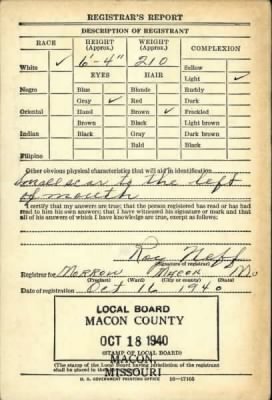 REGISTRAR'S REPORT
DESCRIPTION OF REGISTRANT
RACE HEIGHT (Approx.) WEIGHT (Approx.) COMPLEXION
White ✓ 6'-4" 210 Sallow
EYES HAIR Light ✓
Negro Blue Blonde Ruddy
Gray ✓ Red Dark
Oriental Hazel Brown ✓ Freckled
Brown Black Light brown
Indian Black Gray Dark brown
Bald Black
Filipino
Other obvious physical characteristics that will aid in identification
Small scar to the left
of mouth
I certify that my answers are true; that the person registered has read or has had
read to him his own answers; that I have witnessed his signature or mark and that
all of his answers of which I have knowledge are true, except as follows:
Roy Neff
(Signature of registrar)
Registrar for Morrow Macon Mo
(Precinct) (Ward) (City or county) (State)
Date of registration Oct 16 1940
LOCAL BOARD
MACON COUNTY
OCT 18 1940
(STAMP OF LOCAL BOARD)
MACON,
MISSOURI
(The stamp of the Local Board having jurisdiction of the registrant
shall be placed in the
U. S. GOVERNMENT PRINTING OFFICE 16—17105